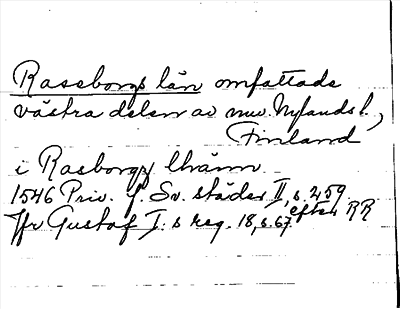 Raseborgs län omfattade
västra delen av nuv. Nylands l.,
Finland
i Rasborgz lhänn
1546 Priv. f. Sv. städer II, s. 259
Jfr Gustaf I:s reg. 18, s. 67 efter RR